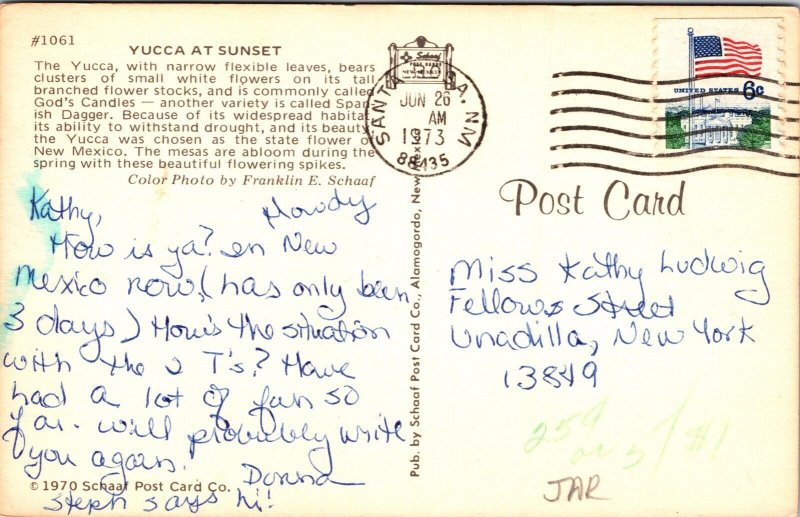 #1061
YUCCA AT SUNSET
The Yucca, with narrow flexible leaves, bears
clusters of small white flowers on its tall
branched flower stocks, and is commonly called
God's Candles — another variety is called Span
ish Dagger. Because of its widespread habitat
its ability to withstand drought, and its beauty
the Yucca was chosen as the state flower of
New Mexico. The mesas are abloom during the
spring with these beautiful flowering spikes.
Color Photo by Franklin E. Schaaf
Kathy, Howdy
How is ya? en New
Mexico now, (has only been
3 days) How's the situation
with the 2 T's? Have
had a lot of fun so
far. will probably write
you again.
Donna
© 1970 Schaaf Post Card Co.
Steph says hi!
Pub. by Schaaf Post Card Co., Alamogordo, New Mexico
Schaaf
POST CARDS
NEW MEXICO
SANTA NM
JUN 26
AM
1973
88435
UNITED STATES 6c
Post Card
Miss Kathy Ludwig
Fellows Street
Unadilla, New York
13849
25¢
or 5/$1
JAR